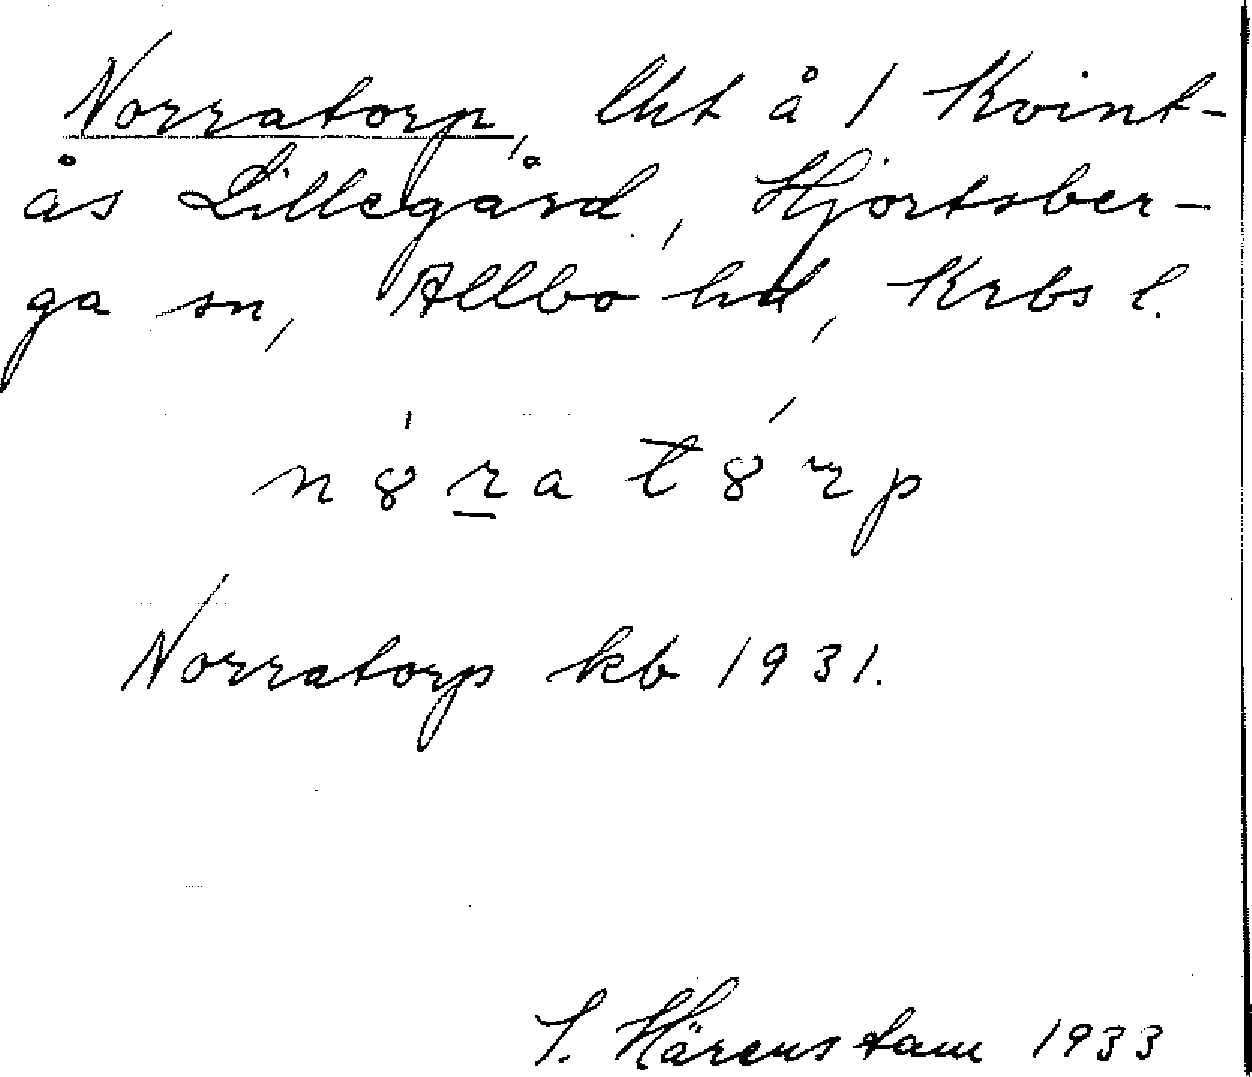 Norratorp, lht å 1 Kvint-
ås Lillegård, Hjortsber-
ga sn, Allbo hd, Krbs l.
Norratorp kb 1931.
S. Härenstam 1933